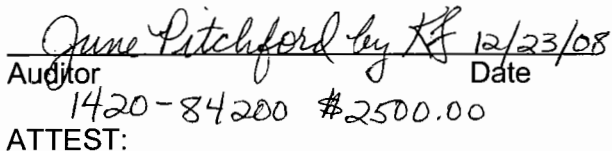 June Pitchford by KF 12/23/08
Auditor Date
1420-84200 $2500.00
ATTEST: